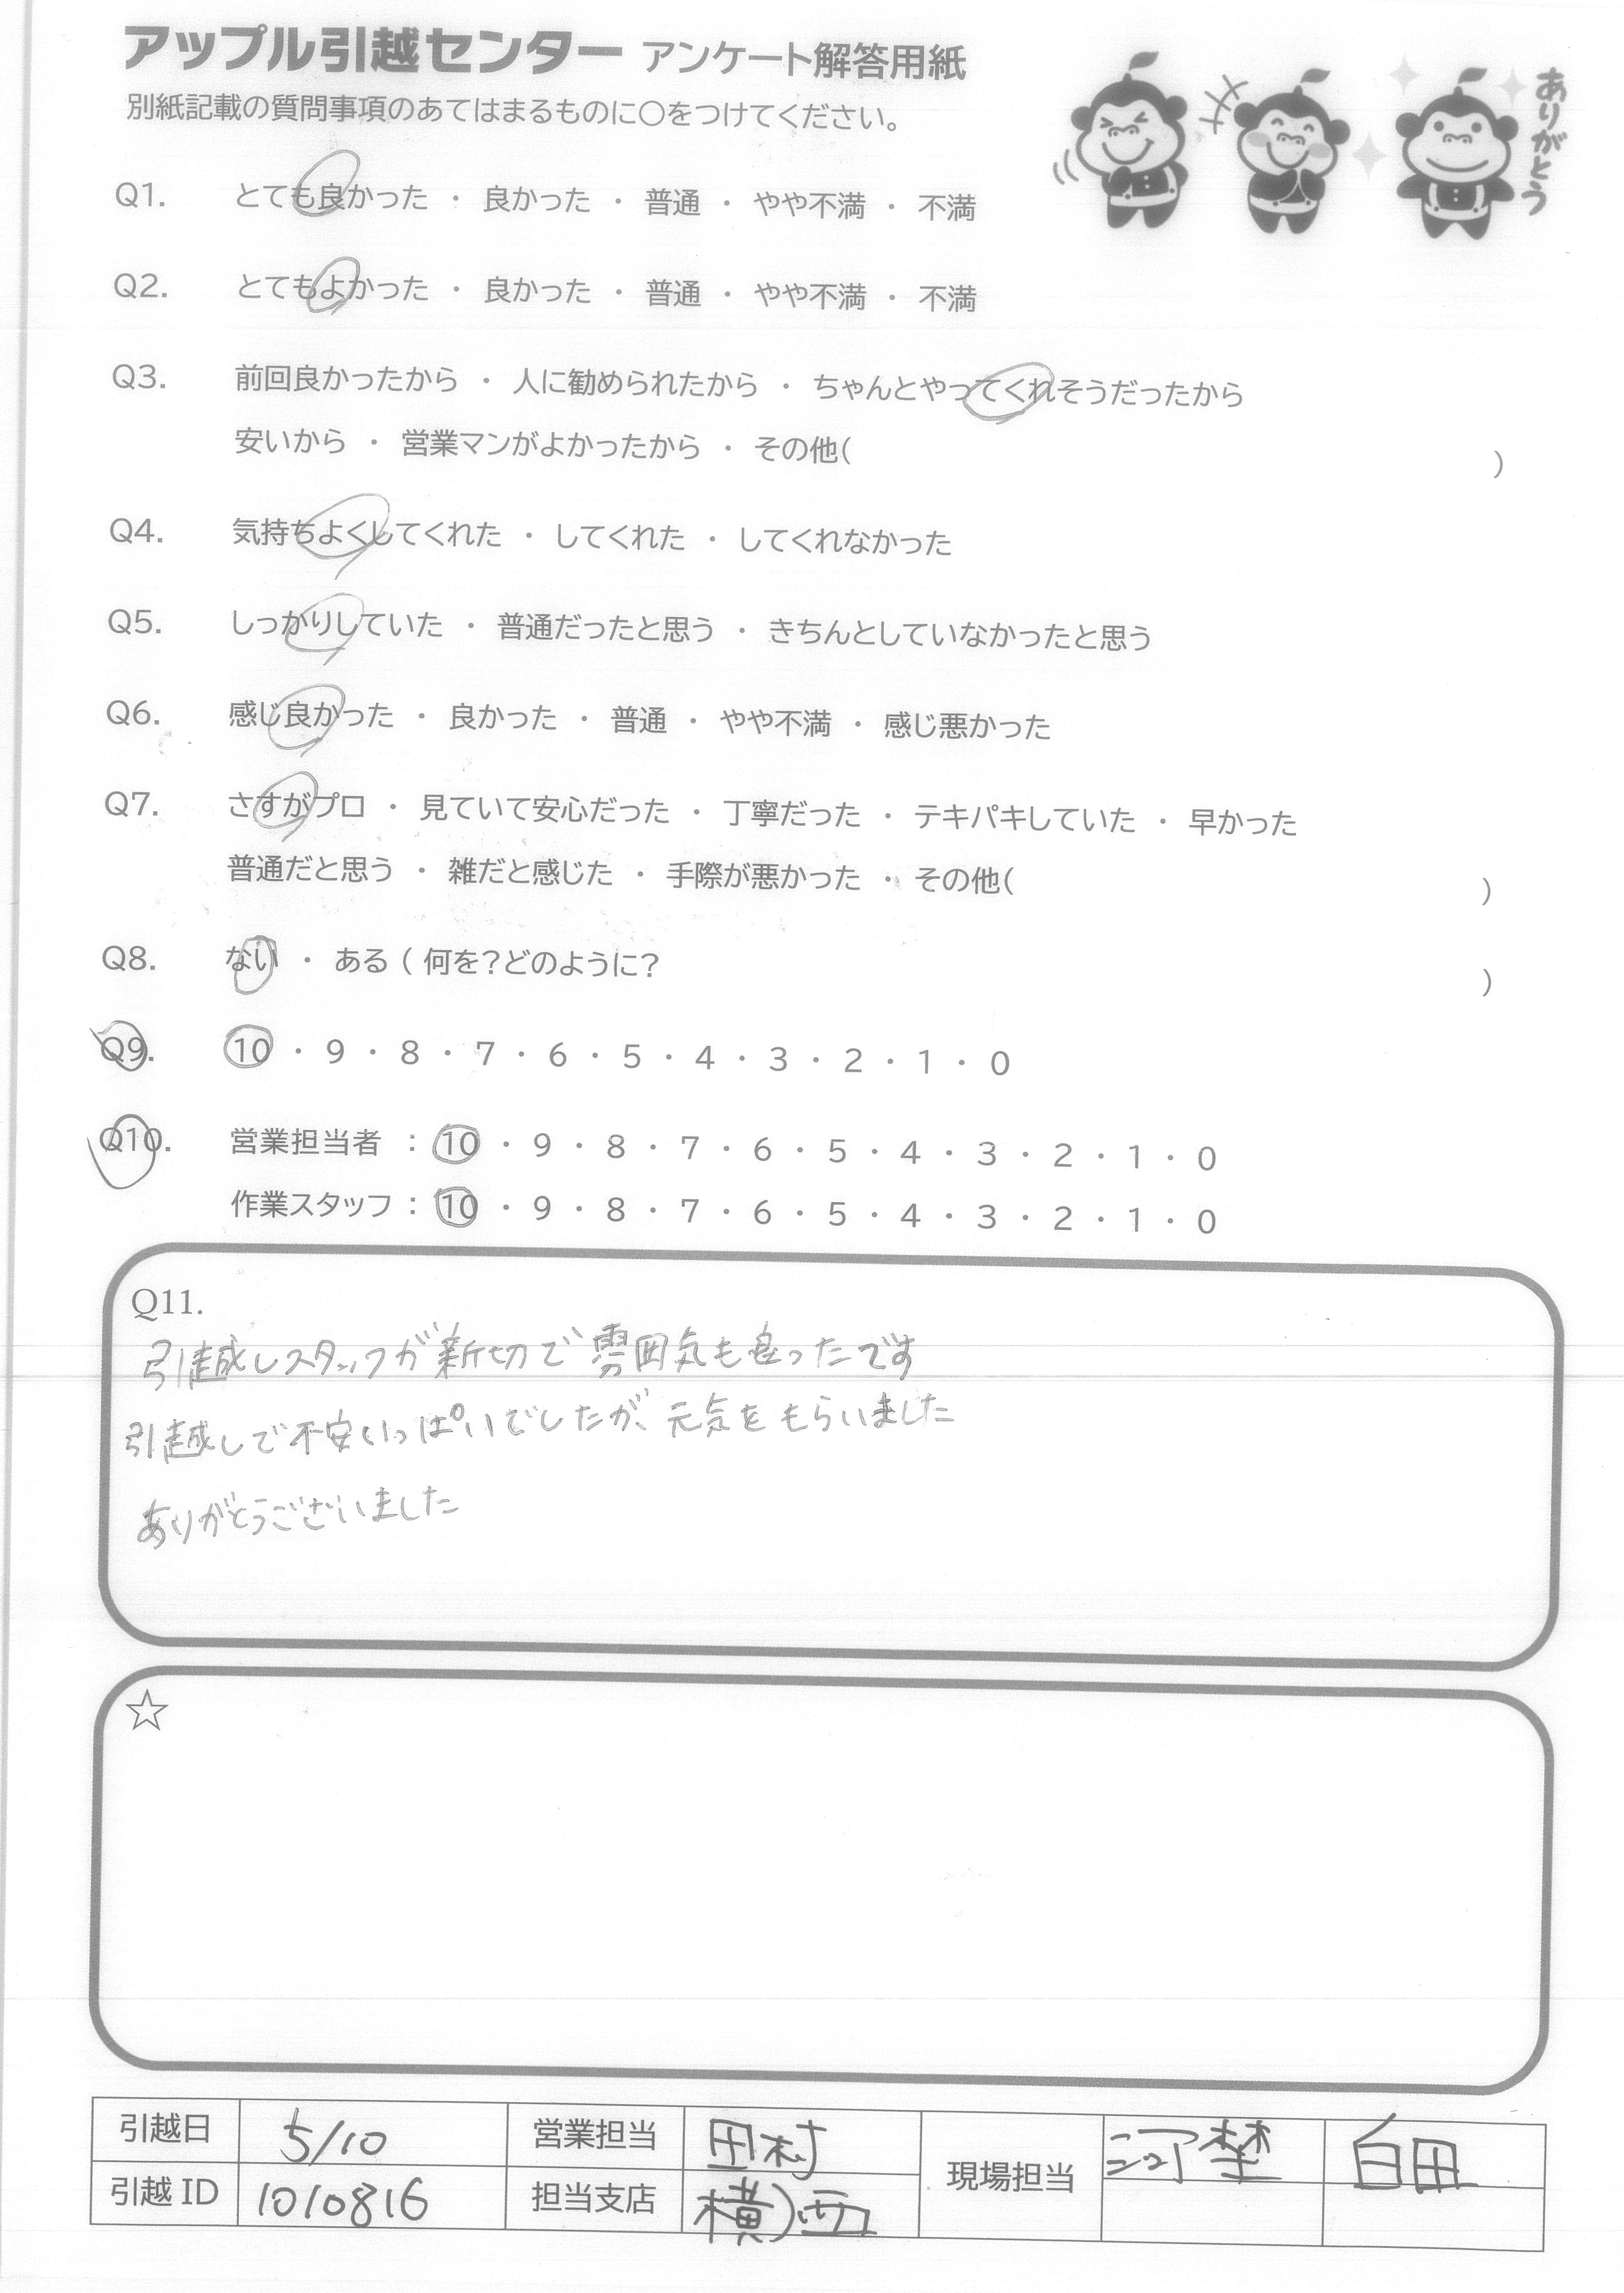 アップル引越センター アンケート解答用紙
ありがとう
別紙記載の質問事項のあてはまるものに〇をつけてください。
Q1. とても良かった ・ 良かった ・ 普通 ・ やや不満 ・ 不満
Q2. とてもよかった ・ 良かった ・ 普通 ・ やや不満 ・ 不満
Q3. 前回良かったから ・ 人に勧められたから ・ ちゃんとやってくれそうだったから
安いから ・ 営業マンがよかったから ・ その他( )
Q4. 気持ちよくしてくれた ・ してくれた ・ してくれなかった
Q5. しっかりしていた ・ 普通だったと思う ・ きちんとしていなかったと思う
Q6. 感じ良かった ・ 良かった ・ 普通 ・ やや不満 ・ 感じ悪かった
Q7. さすがプロ ・ 見ていて安心だった ・ 丁寧だった ・ テキパキしていた ・ 早かった
普通だと思う ・ 雑だと感じた ・ 手際が悪かった ・ その他( )
Q8. ない ・ ある ( 何を？どのように？ )
Q9. 10 ・ 9 ・ 8 ・ 7 ・ 6 ・ 5 ・ 4 ・ 3 ・ 2 ・ 1 ・ 0
Q10. 営業担当者 : 10 ・ 9 ・ 8 ・ 7 ・ 6 ・ 5 ・ 4 ・ 3 ・ 2 ・ 1 ・ 0
作業スタッフ : 10 ・ 9 ・ 8 ・ 7 ・ 6 ・ 5 ・ 4 ・ 3 ・ 2 ・ 1 ・ 0
Q11.
引越しスタッフが新切で雰囲気も良ったです
引越しで不安いっぱいでしたが、元気をもらいました
ありがとうございました
☆
引越日 5/10 営業担当 田村 現場担当 河埜 白田
引越ID 1010816 担当支店 横西